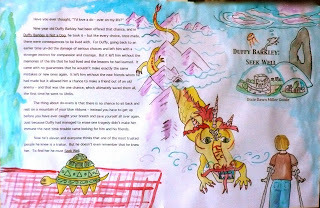 Have you ever thought, "I'd love a do - over on my life"?
Nine year old Duffy Barkley had been offered that chance, and in
Duffy Barkley is Not a Dog, he took it – but like every choice, there
there were consequences to be lived with. For Duffy, going back to an
earlier time undid the damage of serious choices and left him with a
stronger emotion for courage and compassion. But it left him without the
memories of the life that he had lived and the lessons he had learned. It
came with no guarantees that he wouldn't make exactly the same
mistakes or new ones again. It left him without the new friends whom he
had made but it allowed him a chance to make a friend out of an old
enemy - and that was the one chance, which ultimately saved them all,
the first time he came to Uhrlin.
The thing about do-overs is that there is no chance to sit back and
rest on a mountain of your blue ribbons – instead you have to get up
before you have ever caught your breath and save yourself all over again.
Just because Duffy had managed to erase one tragedy didn't make him
immune the next time trouble came looking for him and his friends.
Now he's eleven and everyone thinks that one of the most trusted
people he knew is a traitor. But he doesn't even remember that he knew
her. To find her he must Seek Well.
DUFFY BARKLEY:
SEEK WELL
Tessie Dawn Miller Green